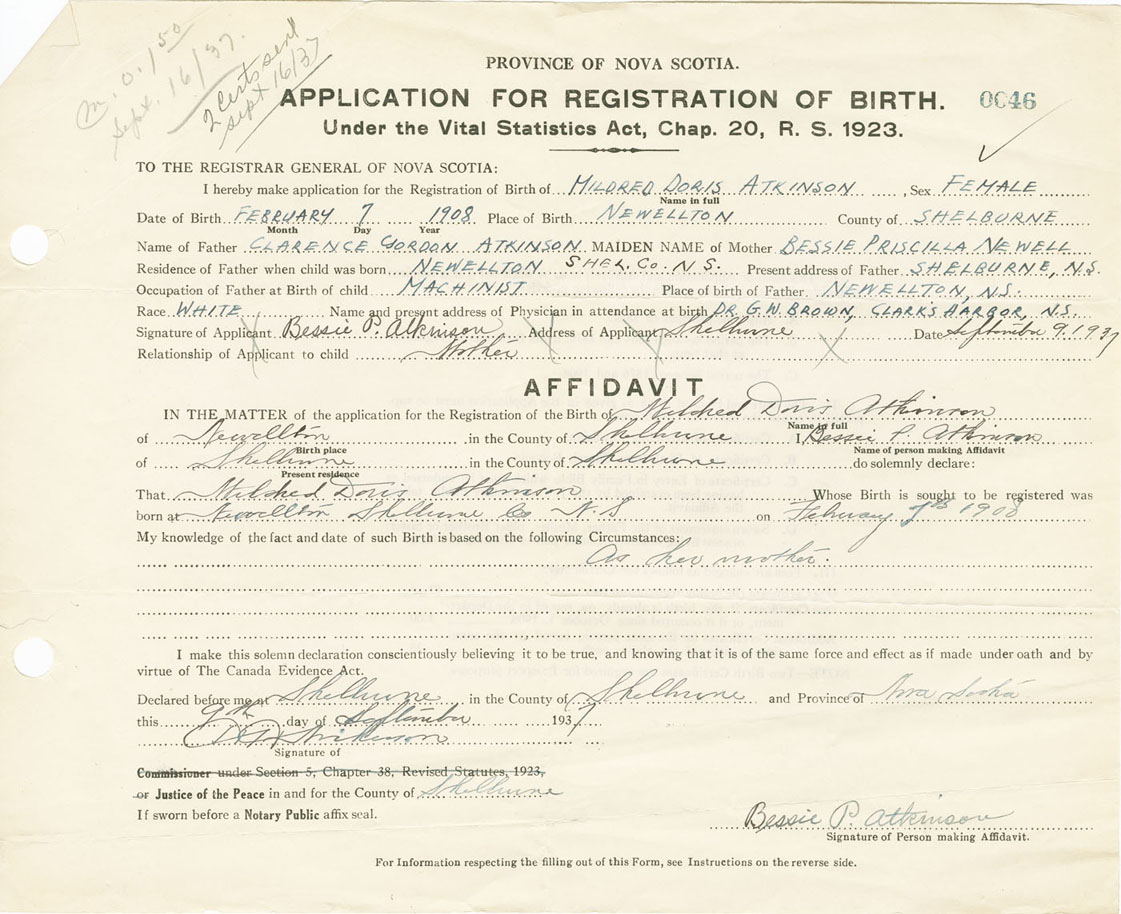 m.0. 1 50
Sept. 16/37.
2 Certs sent
Sept 16/37
PROVINCE OF NOVA SCOTIA.
APPLICATION FOR REGISTRATION OF BIRTH. 0046
Under the Vital Statistics Act, Chap. 20, R. S. 1923.
TO THE REGISTRAR GENERAL OF NOVA SCOTIA:
I hereby make application for the Registration of Birth of MILDRED DORIS ATKINSON, Sex FEMALE
Name in full
Date of Birth FEBRUARY 7 1908 Place of Birth NEWELLTON County of SHELBURNE
Month Day Year
Name of Father CLARENCE GORDON ATKINSON MAIDEN NAME of Mother BESSIE PRISCILLA NEWELL
Residence of Father when child was born NEWELLTON SHEL. CO. N.S. Present address of Father SHELBURNE, N.S.
Occupation of Father at Birth of child MACHINIST Place of birth of Father NEWELLTON, N.S.
Race WHITE Name and present address of Physician in attendance at birth DR. G.W. BROWN, CLARKS HARBOR, N.S.
Signature of Applicant Bessie P. Atkinson Address of Applicant Shelburne Date September 9. 1937
Relationship of Applicant to child Mother
AFFIDAVIT
IN THE MATTER of the application for the Registration of the Birth of Mildred Doris Atkinson
Name in full
of Newellton in the County of Shelburne I Bessie P. Atkinson
Birth place Name of person making Affidavit
of Shelburne in the County of Shelburne do solemnly declare:
Present residence
That Mildred Doris Atkinson Whose Birth is sought to be registered was
born at Newellton Shelburne Co N.S on February 7th 1908
My knowledge of the fact and date of such Birth is based on the following Circumstances:
As her mother.
I make this solemn declaration conscientiously believing it to be true, and knowing that it is of the same force and effect as if made under oath and by
virtue of The Canada Evidence Act.
Declared before me at Shelburne in the County of Shelburne and Province of Nova Scotia
this 9th day of September 1937
Signature of
Commissioner under Section 5, Chapter 38, Revised Statutes, 1923,
or Justice of the Peace in and for the County of Shelburne
If sworn before a Notary Public affix seal.
Bessie P. Atkinson
Signature of Person making Affidavit.
For Information respecting the filling out of this Form, see Instructions on the reverse side.